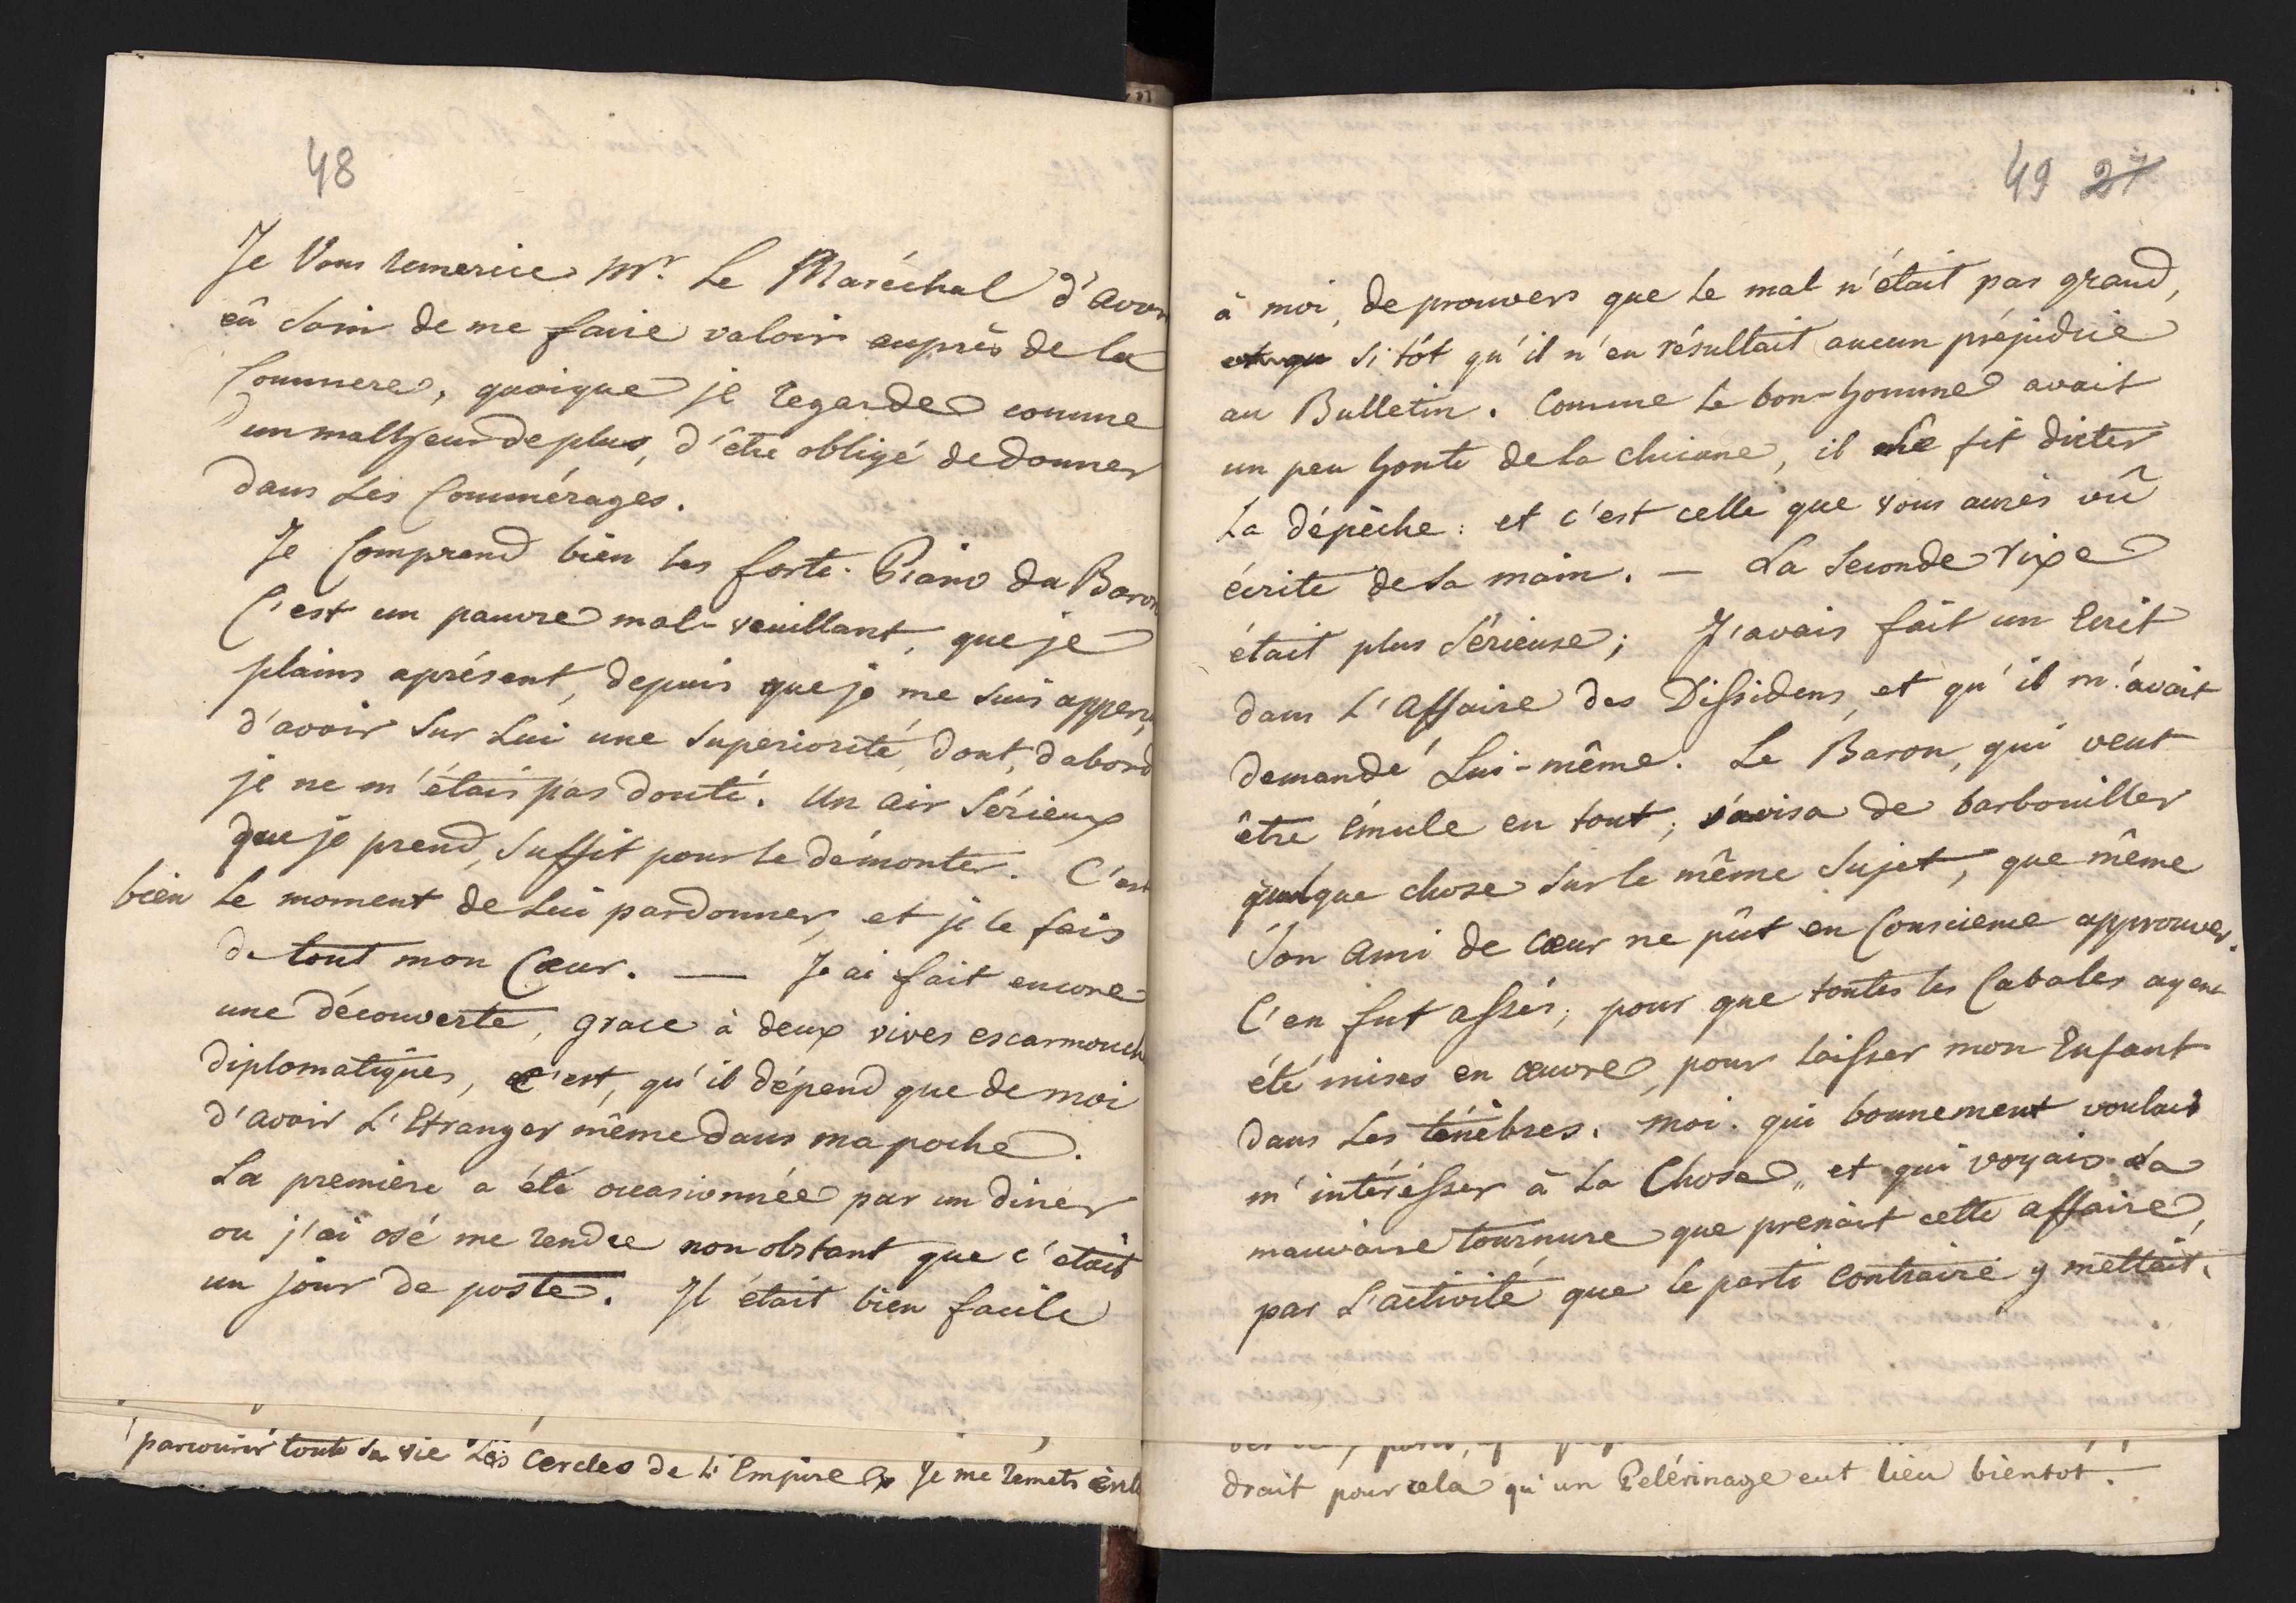 48
Je Vous remercie Mr. Le Maréchal d'avoir
eû soin de me faire valoir auprès de la
Commere, quoique je regarde comme
un malheur de plus, d'être obligé de donner
dans Les Commérages.
Je Comprend bien les forte-Piano du Baron
C'est un pauvre mal-veuillant, que je
plains aprésent, depuis que je me suis apperçu
d'avoir sur Lui une superiorité, dont, d'abord
je ne m'étais pas douté. Un air Sérieux
que je prend, suffit pour le démonter. C'est
bien le moment de Lui pardonner, et je le fais
de tout mon Cœur. — J'ai fait encore
une découverte, grace à deux vives escarmouch
diplomatiques, c'est, qu'il dépend que de moi
d'avoir L'Etranger même dans ma poche.
La premiere a été occasionnée par un diner
ou j'ai osé me rendre nonobstant que c'etait
un jour de poste. Il était bien facile
parcourir toute sa vie Les Cercles de L'Empire Je me remets
49 27
à moi, de prouver que le mal n'était pas grand,
si tôt qu'il n'en résultait aucun préjudice
au Bulletin. Comme le bon-homme avait
un peu honte de la chicane, il se fit dicter
La dépèche: et c'est celle que vous aurès vû
écrite de sa main. — La seconde rixe
était plus sérieuse; J'avais fait un Ecrit
dans L'Affaire des Dissidens, et qu'il m'avait
demandé Lui-même. Le Baron, qui veut
être émule en tout; s'avisa de barbouiller
quelque chose sur le même sujet, que même
Son Ami de Cœur ne pût en Conscience approuver.
C'en fut assés, pour que toutes les Cabales ayent
été mises en œuvre, pour laisser mon Enfant
dans Les ténèbres. Moi. qui bonnement voulais
m'intéresser à La Chose, et qui voyais La
mauvaise tournure que prenait cette affaire,
par L'activité que le parti Contraire y mettait.
drait pour cela qu'un Pelérinage eut lieu bientot.